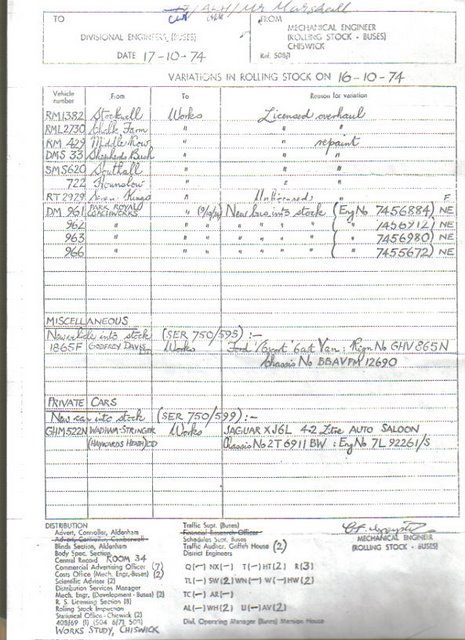 TO
FROM
DIVISIONAL ENGINEERS, (BUSES)
MECHANICAL ENGINEER
(ROLLING STOCK - BUSES)
CHISWICK
DATE 17-10-74
VARIATIONS IN ROLLING STOCK ON 16-10-74
Vehicle number From To Reason for variation
RM1382 Stockwell Works Licensed overhaul
RML2730 Chalk Farm " " "
RM 429 Middle Row " " repaint
DMS 33 Shepherds Bush " " "
SMS620 Southall " " "
722 Hounslow " " "
RT 2929 Seven Kings " Unlicensed " F
DM 961 PARK ROYAL COACHWORKS " New bus into stock (Eng No 7456884) NE
962 " " " " " " ( " ) NE
963 " " " " " " ( " 7456980) NE
966 " " " " " " ( " 7455672) NE
MISCELLANEOUS
New vehicle into stock (SER 750/595) :-
1865F GODFREY DAVIS Works Ford 'Escort' 6cwt Van : Regn. No GHV 865N
Chassis No BBAVPM 12690
PRIVATE CARS
New car into stock (SER 750/599) :-
GHM522N WADHAM-STRINGER Works JAGUAR XJ6L 4·2 Litre AUTO SALOON
(HAYWARDS HEATH) Chassis No 2T6911 BW : Eng No 7L 92261/S
DISTRIBUTION
Advert. Controller, Aldenham
Advert. Controller, Camberwell
Blinds Section, Aldenham
Body Spec. Section
Central Record ROOM 34
Commercial Advertising Officer (7)
Costs Office (Mech. Engr.-Buses) (2)
Scientific Adviser (2)
Distribution Services Manager
Mech. Engr. (Development - Buses) (2)
R. S. Licensing Section (8)
Rolling Stock Inspection
Statistical Office - Chiswick (2)
WORKS STUDY, CHISWICK
Traffic Supt. (Buses)
Financial Research Officer
Schedules Supt. Buses
Traffic Auditor, Griffith House (2)
District Engineers
Q(-) NX(-) T(-) HT(2) R(3)
TL(-) SW(2) WN(-) W(-) HW(2)
TC(-) AR(-)
AL(-) WH(2) U(-) AV(2)
Divl. Operating Manager (Buses) Mansion House
MECHANICAL ENGINEER
(ROLLING STOCK - BUSES)